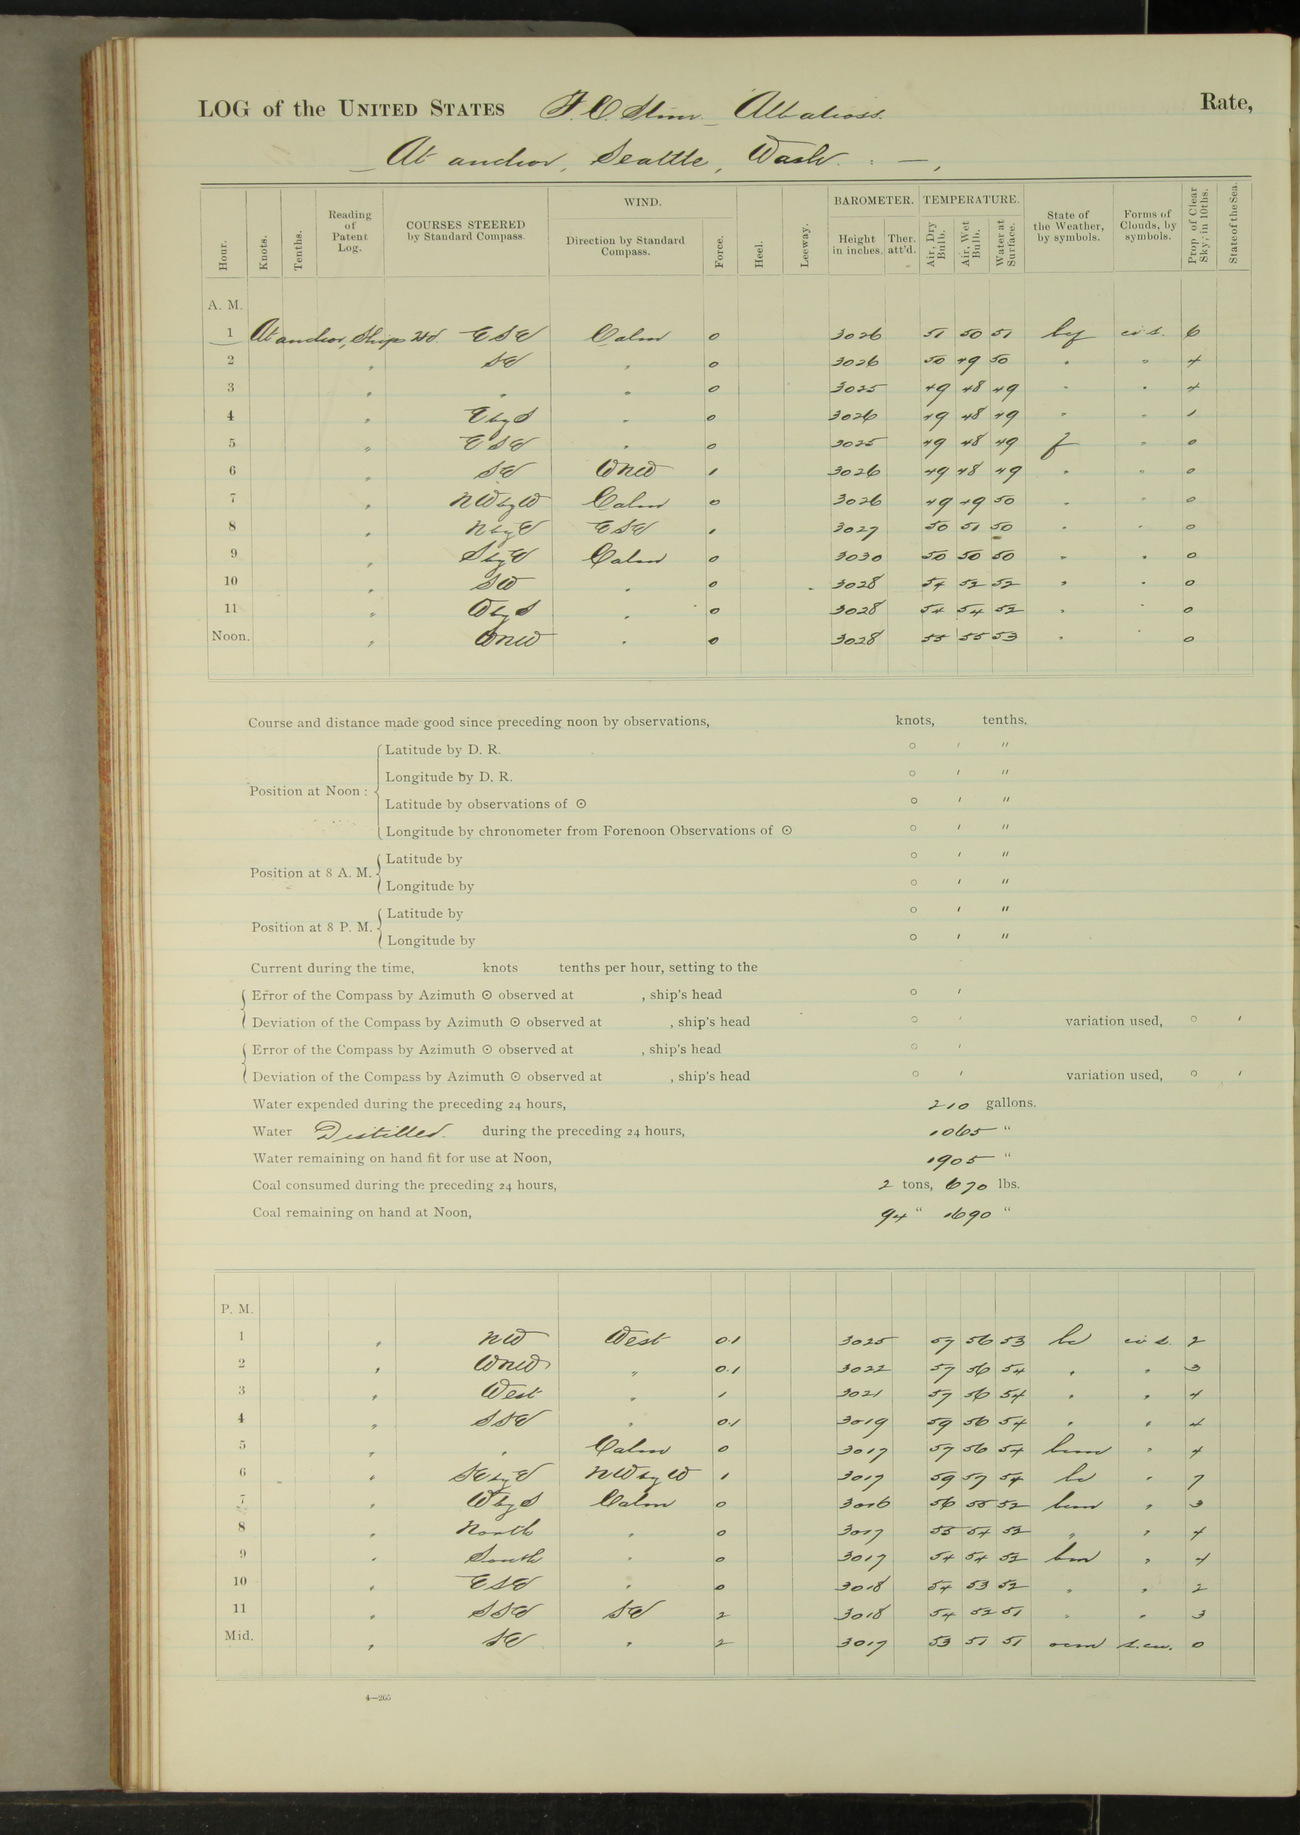 LOG of the UNITED STATES F. C. Stmr. Albatross. Rate,
At anchor, Seattle, Wash. : — ,
Hour. Knots. Tenths. Reading of Patent Log. COURSES STEERED by Standard Compass. WIND. Direction by Standard Compass. Force. Heel. Leeway. BAROMETER. Height in inches. Ther. att'd. TEMPERATURE. Air, Dry Bulb. Air, Wet Bulb. Water at Surface. State of the Weather, by symbols. Forms of Clouds, by symbols. Prop. of Clear Sky; in 10ths. State of the Sea.
A. M.
1 At anchor, Ship's Hd. ESE Calm 0 3026 51 50 51 bcf ci s. 6
2 " SE " 0 3026 50 49 50 " " 4
3 " " " 0 3025 49 48 49 " " 4
4 " E by S " 0 3026 49 48 49 " " 1
5 " ESE " 0 3025 49 48 49 f " 0
6 " SE WNW 1 3026 49 48 49 " " 0
7 " NW by W Calm 0 3026 49 49 50 " " 0
8 " N by E ESE 1 3027 50 51 50 " " 0
9 " S by E Calm 0 3030 50 50 50 " " 0
10 " SW " 0 3028 54 52 52 " " 0
11 " W by S " 0 3028 54 54 52 " " 0
Noon. " WNW " 0 3028 55 55 53 " " 0
Course and distance made good since preceding noon by observations, knots, tenths.
Position at Noon : Latitude by D. R. ° ′ ″
Longitude by D. R. ° ′ ″
Latitude by observations of ⊙ ° ′ ″
Longitude by chronometer from Forenoon Observations of ⊙ ° ′ ″
Position at 8 A. M. Latitude by ° ′ ″
Longitude by ° ′ ″
Position at 8 P. M. Latitude by ° ′ ″
Longitude by ° ′ ″
Current during the time, knots tenths per hour, setting to the
Error of the Compass by Azimuth ⊙ observed at , ship's head ° ′
Deviation of the Compass by Azimuth ⊙ observed at , ship's head ° ′ variation used, ° ′
Error of the Compass by Azimuth ⊙ observed at , ship's head ° ′
Deviation of the Compass by Azimuth ⊙ observed at , ship's head ° ′ variation used, ° ′
Water expended during the preceding 24 hours, 210 gallons.
Water Distilled. during the preceding 24 hours, 1065 "
Water remaining on hand fit for use at Noon, 1905 "
Coal consumed during the preceding 24 hours, 2 tons, 670 lbs.
Coal remaining on hand at Noon, 94 " 1690 "
P. M.
1 " NW West 0.1 3025 57 56 53 bc ci s. 2
2 " WNW " 0.1 3022 57 56 54 " " 3
3 " West " 1 3021 57 56 54 " " 4
4 " SSE " 0.1 3019 59 56 54 " " 4
5 " " Calm 0 3017 57 56 54 bcm " 4
6 " SE by E NW by W 1 3017 59 57 54 bc " 7
7 " W by S Calm 0 3016 56 55 52 bcm " 3
8 " North " 0 3017 55 54 52 " " 4
9 " South " 0 3017 54 54 52 bm " 4
10 " ESE " 0 3018 54 53 52 " " 2
11 " SSE SE 2 3018 54 52 51 " " 3
Mid. " SE " 2 3017 53 51 51 ocm s. cu. 0
4—265